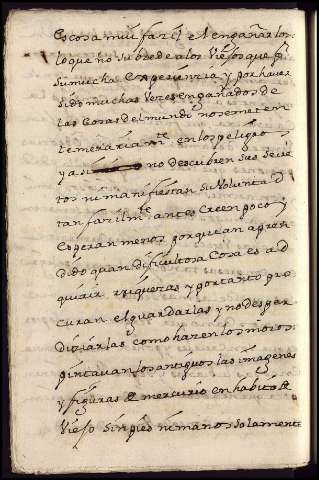 es cosa mui facil el engañarlos
lo que no subcede a los viejos que pr
su mucha experiencia y por haver
sido muchas vezes engañados de
las cosas del mundo no se meten
temerariamte en los peligros
y asi no descubren sus secre
tos ni manifiestan su voluntad
tan facilmte antes creen poco y
esperan menos porque an apren
dido quan dificultosa cosa es ad
quirir riquezas y por tanto pro
curan el guardarlas y no desper
diciarlas como hazen los mozos.
pintavan los antiguos las imagenes
y figuras de mercurio en habito de
viejo sin pies ni manos solamente